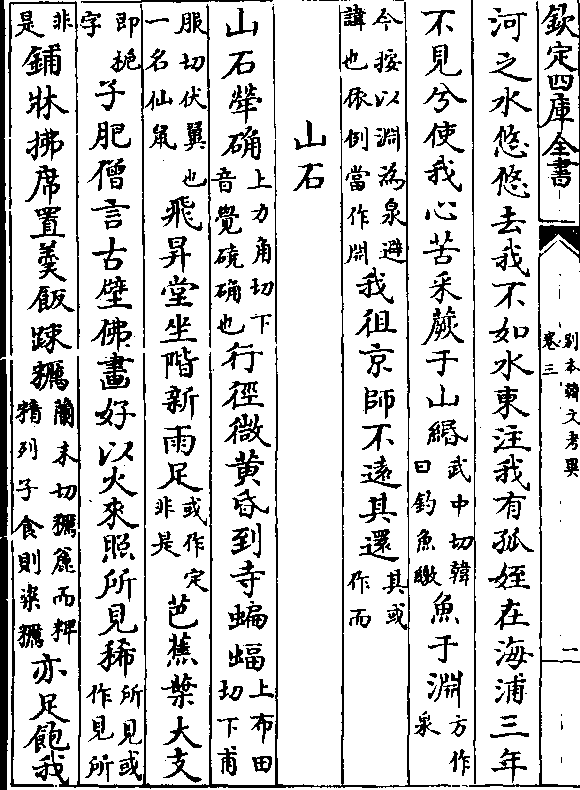 欽定四庫全書
別本韓文考異
卷三
二
河之水悠悠去我不如水東注我有孤姪在海浦三年
不見兮使我心苦采蕨于山緡武中切韓曰釣魚繳魚于淵方作泉
今按以淵為泉避諱也依例當作淵我徂京師不遠其還其或作而
山石
山石犖确上力角切下音覺磽确也行徑微黄昏到寺蝙蝠上布田切下甫
服切伏翼也一名仙鼠飛昇堂坐階新雨足或作定非是芭蕉葉大支
即梔字子肥僧言古壁佛畫好以火來照所見稀所見或作見所
非是鋪牀拂席置羮飯踈糲蘭末切糲麄而粺精列子食則粢糲亦足飽我